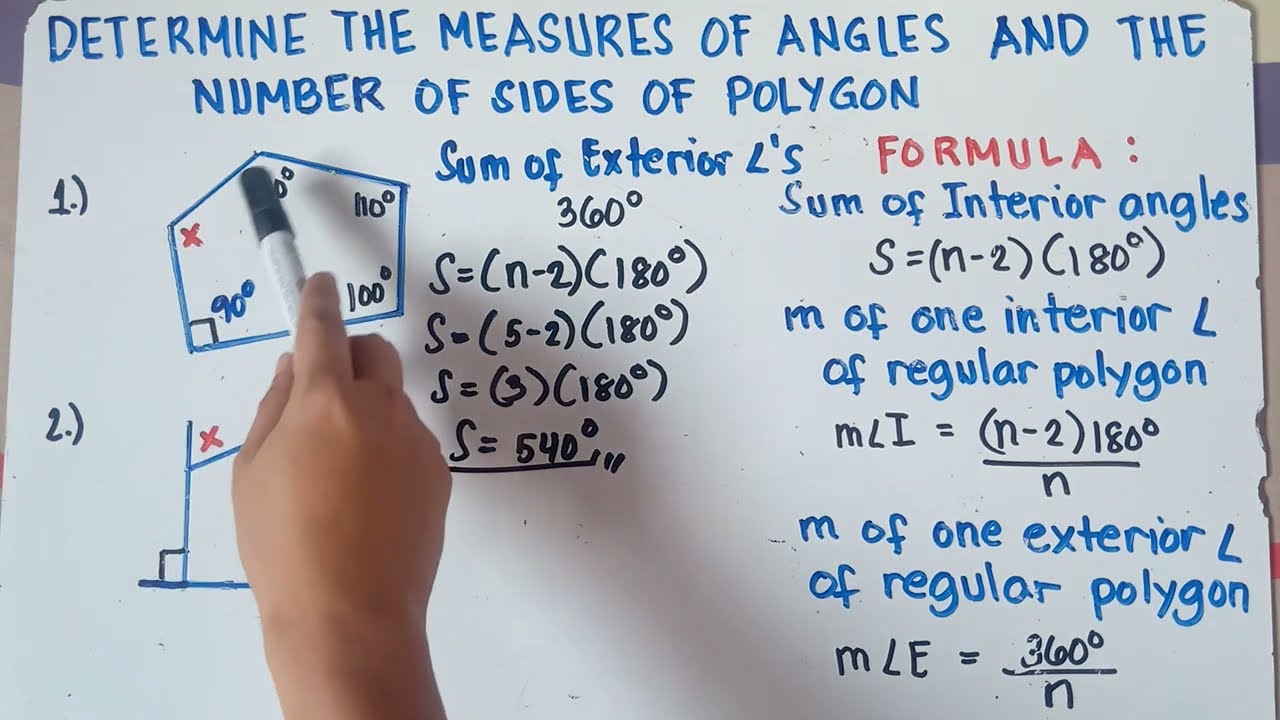 DETERMINE THE MEASURES OF ANGLES AND THE
NUMBER OF SIDES OF POLYGON
1.)
x
110°
90°
100°
2.)
x
Sum of Exterior ∠'s
360°
S=(n-2)(180°)
S=(5-2)(180°)
S=(3)(180°)
S=540°,,,
FORMULA:
Sum of Interior angles
S=(n-2)(180°)
m of one interior ∠
of regular polygon
m∠I = (n-2)180°
n
m of one exterior ∠
of regular polygon
m∠E = 360°
n